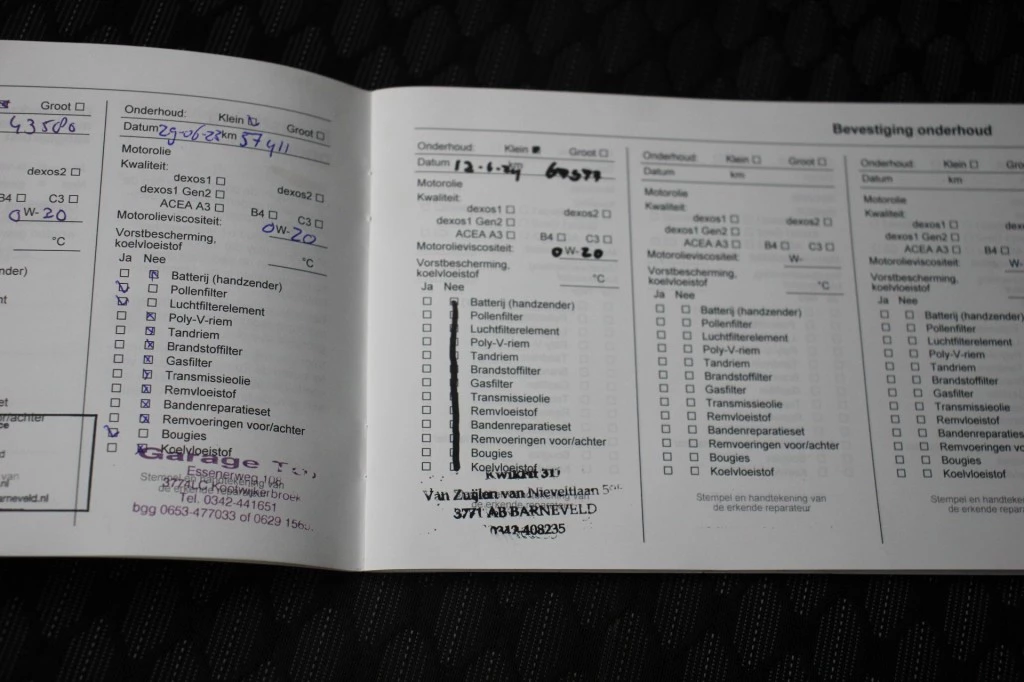 Groot
43580
dexos2
B4 C3
0W-20
°C
nder)
nt
et
or/achter
ce
d
van
.nl
arneveld.nl
Onderhoud: Klein Groot
Datum 29-06-23 km 57411
Motorolie
Kwaliteit:
dexos1 dexos2
dexos1 Gen2
ACEA A3 B4 C3
Motorolieviscositeit: 0W-20
Vorstbescherming,
koelvloeistof °C
Ja Nee
Batterij (handzender)
Pollenfilter
Luchtfilterelement
Poly-V-riem
Tandriem
Brandstoffilter
Gasfilter
Transmissieolie
Remvloeistof
Bandenreparatieset
Remvoeringen voor/achter
Bougies
Koelvloeistof
Garage
Essenerweg
Stempel en handtekening van
3774LC Kootwijkerbroek
de erkende reparateur
Tel. 0342-441651
bgg 0653-477033 of 0629
Bevestiging onderhoud
Onderhoud: Klein Groot
Datum 12-6-24 km
Motorolie
Kwaliteit:
dexos1 dexos2
dexos1 Gen2
ACEA A3 B4 C3
Motorolieviscositeit: 0W-20
Vorstbescherming,
koelvloeistof °C
Ja Nee
Batterij (handzender)
Pollenfilter
Luchtfilterelement
Poly-V-riem
Tandriem
Brandstoffilter
Gasfilter
Transmissieolie
Remvloeistof
Bandenreparatieset
Remvoeringen voor/achter
Bougies
Koelvloeistof
KWIKFIT 310
Van Zuijlen van Nieveltlaan
3771 AB BARNEVELD
0342-408235
Onderhoud: Klein Groot
Datum km
Motorolie
Kwaliteit:
dexos1 dexos2
dexos1 Gen2
ACEA A3 B4 C3
Motorolieviscositeit: W-
Vorstbescherming,
koelvloeistof °C
Ja Nee
Batterij (handzender)
Pollenfilter
Luchtfilterelement
Poly-V-riem
Tandriem
Brandstoffilter
Gasfilter
Transmissieolie
Remvloeistof
Bandenreparatieset
Remvoeringen voor/achter
Bougies
Koelvloeistof
Stempel en handtekening van
de erkende reparateur
Onderhoud: Klein Groot
Datum km
Motorolie
Kwaliteit:
dexos1
dexos1 Gen2
ACEA A3 B4
Motorolieviscositeit: W-
Vorstbescherming,
koelvloeistof
Ja Nee
Batterij (handzender)
Pollenfilter
Luchtfilterelement
Poly-V-riem
Tandriem
Brandstoffilter
Gasfilter
Transmissieolie
Remvloeistof
Bandenreparatieset
Remvoeringen voor
Bougies
Koelvloeistof
Stempel en handtekening
de erkende repara